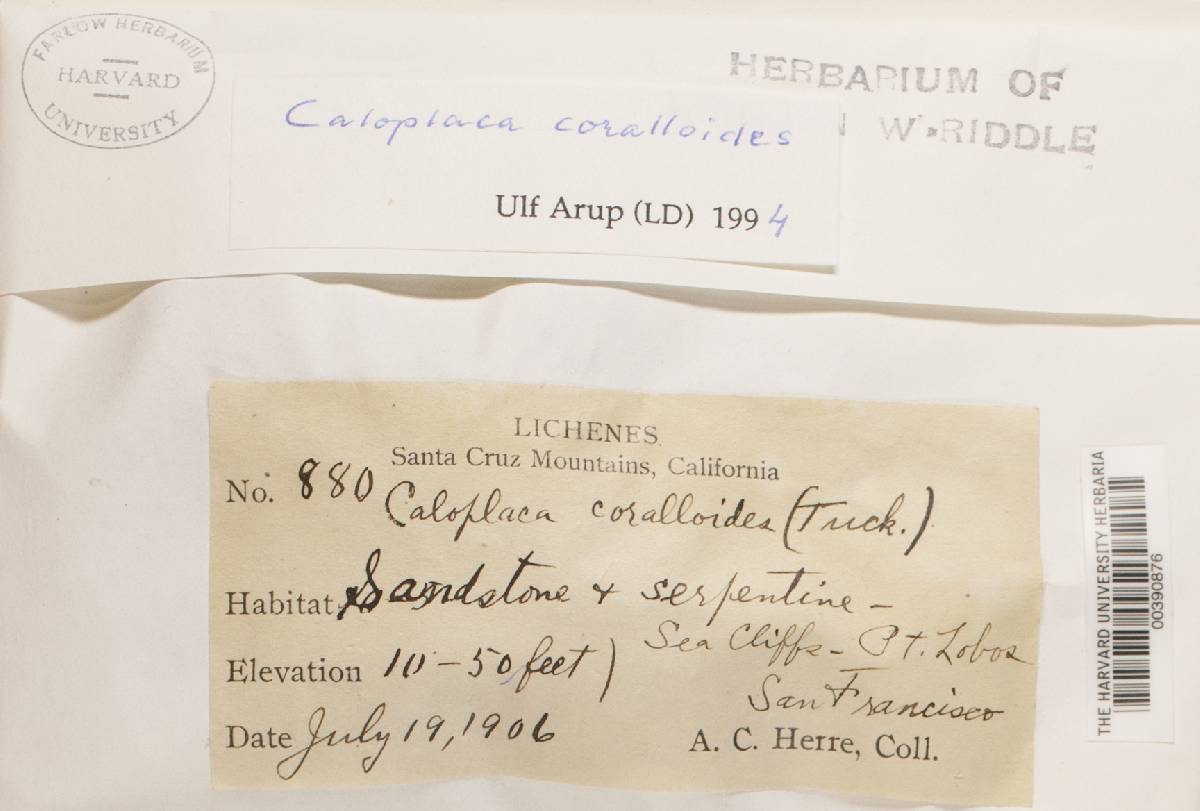 FARLOW HERBARIUM
HARVARD
UNIVERSITY
HERBARIUM OF
W. RIDDLE
Caloplaca coralloides
Ulf Arup (LD) 1994
LICHENES
Santa Cruz Mountains, California
No. 880 Caloplaca coralloides (Tuck.)
Habitat Sandstone & serpentine –
Sea Cliffs – Pt. Lobos
Elevation 10 – 50 feet)
San Francisco
Date July 19, 1906
A. C. Herre, Coll.
THE HARVARD UNIVERSITY HERBARIA
00390876